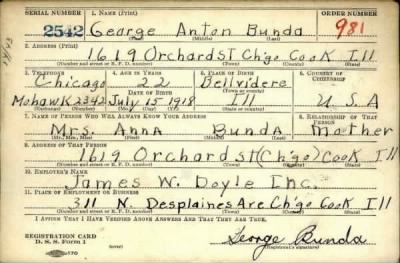 SERIAL NUMBER 1. NAME (Print) ORDER NUMBER
2542 George Anton Bunda 981
(First) (Middle) (Last)
2. ADDRESS (Print)
1619 Orchard ST Ch'go Cook Ill
(Number and street or R. F. D. number) (Town) (County) (State)
3. TELEPHONE 4. AGE IN YEARS 5. PLACE OF BIRTH 6. COUNTRY OF CITIZENSHIP
Chicago 22 Bellvidere
DATE OF BIRTH (Town or county)
Mohawk 2342 July 15 1918 Ill U.S.A
(Exchange) (Number) (Mo.) (Day) (Yr.) (State or country)
7. NAME OF PERSON WHO WILL ALWAYS KNOW YOUR ADDRESS 8. RELATIONSHIP OF THAT PERSON
Mrs. Anna Bunda Mother
(Mr., Mrs., Miss) (First) (Middle) (Last)
9. ADDRESS OF THAT PERSON
1619 Orchard st (Ch'go) Cook Ill
(Number and street or R. F. D. number) (Town) (County) (State)
10. EMPLOYER'S NAME
James W. Doyle Inc.
11. PLACE OF EMPLOYMENT OR BUSINESS
311 N. Desplaines Are Ch'go Cook Ill
(Number and street or R. F. D. number) (Town) (County) (State)
I AFFIRM THAT I HAVE VERIFIED ABOVE ANSWERS AND THAT THEY ARE TRUE.
REGISTRATION CARD
D. S. S. Form 1
George Bunda
(Registrant's signature)